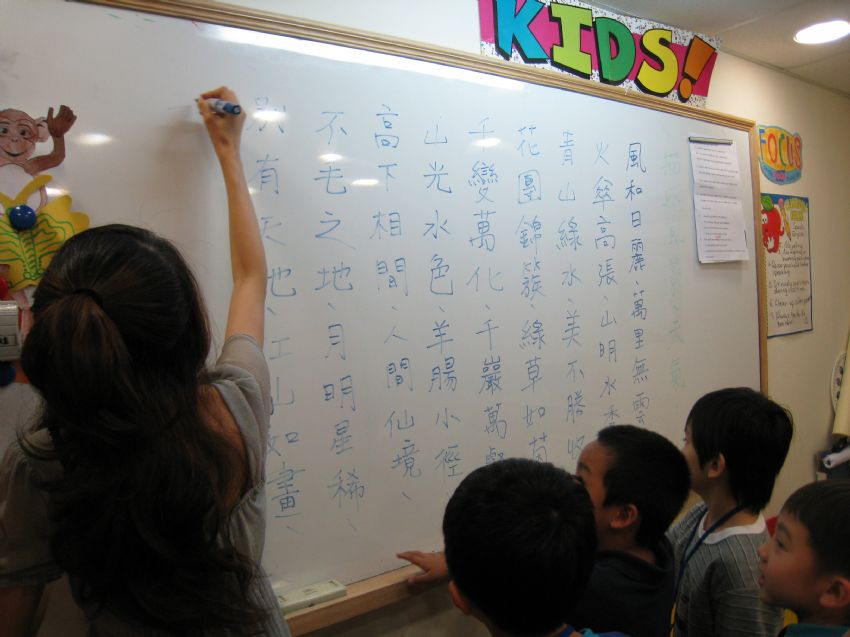 KIDS!
FOCUS
風和日麗、萬里無雲
火傘高張、山明水秀
青山綠水、美不勝收
花團錦簇、綠草如茵
千變萬化、千巖萬壑
山光水色、羊腸小徑、
高下相間、人間仙境、
不毛之地、月明星稀、
別有天地、江山如畫、